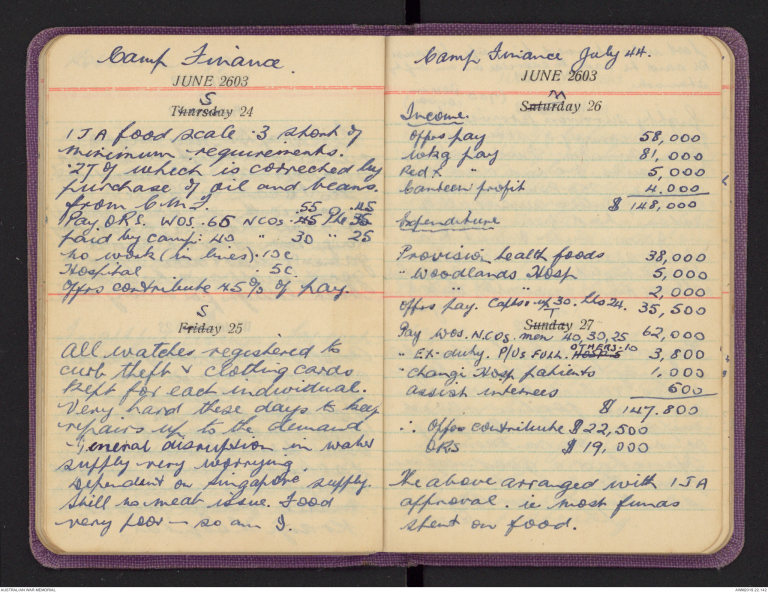 Camp Finance.
JUNE 2603
S
Thursday 24
IJA food scale .3 short of
minimum requirements.
.27 of which is corrected by
purchase of oil and beans.
from C.M.I. .55 .45
Pay. ORS. WOS .65 NCOS .45 Pte 35
paid by camp: 40 " 30 " 25
no work (in lines) .10c
Hospital . 5c.
Offrs contribute 45% of pay.
S
Friday 25
All watches registered to
curb theft & clothing cards
kept for each individual.
Very hard these days to keep
repairs up to the demand
- General disruption in water
supply very worrying.
Dependent on Singapore supply.
Still no meat issue. Food
very poor - so am I.
Camp Finance July 44.
JUNE 2603
M
Saturday 26
Income.
Offrs pay 58,000
wkg pay 81,000
Red X. " 5,000
Canteen profit 4.000
$ 148,000
Expenditure
Provision health foods 38,000
" Woodlands Hosp 5,000
" " 2,000
Offrs pay. Capts. up 30. Lts 24. 35,500
T
Sunday 27
Pay WOS. NCOS. men 40,30,25 62,000
OTHERS.10
" Ex-duty. P/Us FULL. HOSP 5 3,800
" Changi Hosp patients 1,000
assist internees 600
$ 147.800
∴ Offrs contribute $ 22,500
ORS $ 19,000
The above arranged with IJA
approval. ie most funds
spent on food.
AUSTRALIAN WAR MEMORIAL
AWM2018.22.142